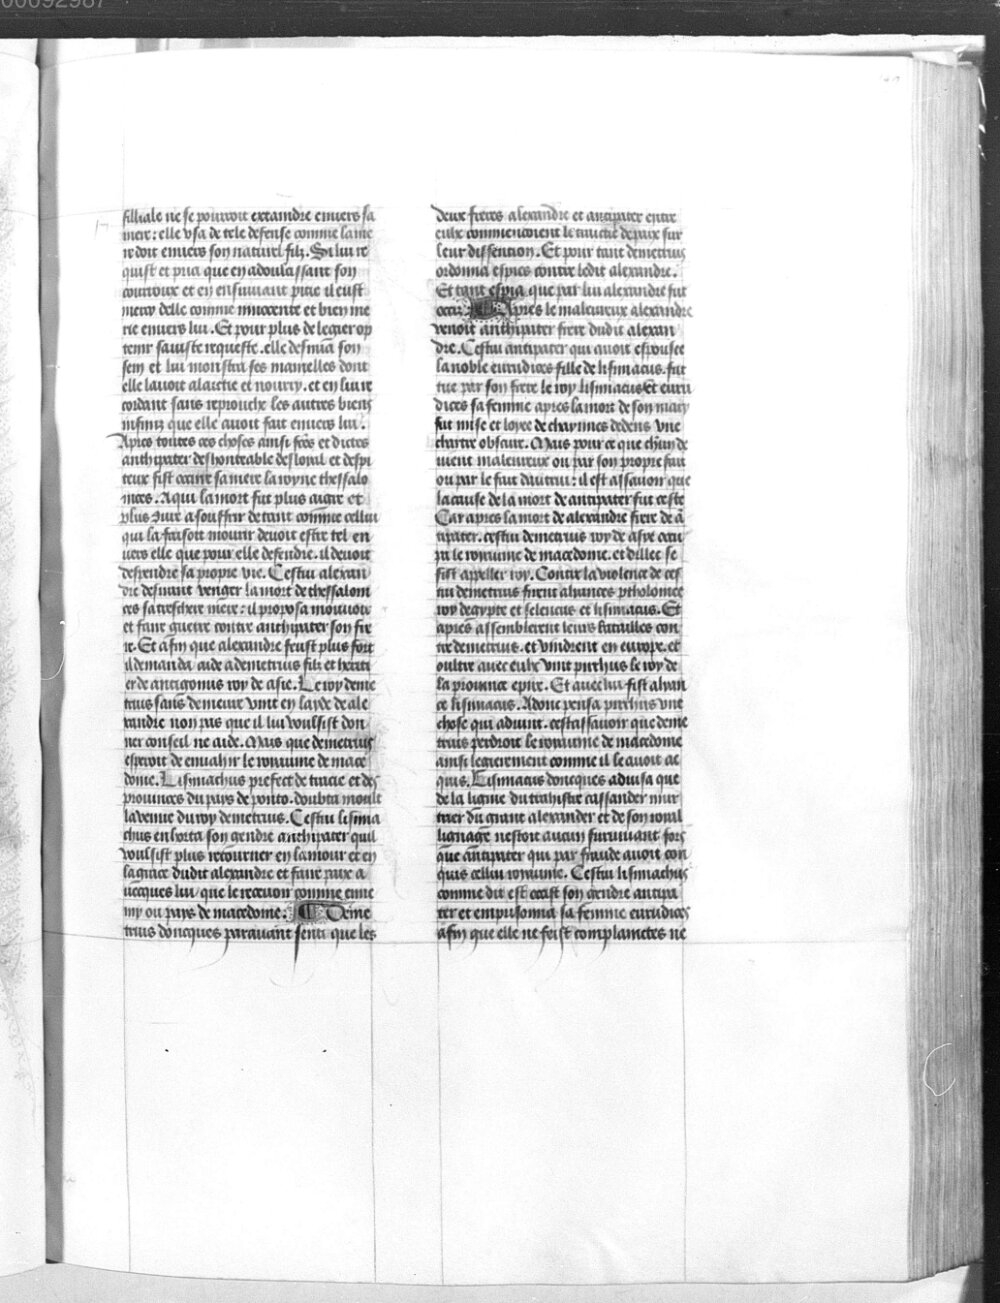 00092987
filliale ne se pourroit extaindre enuers sa
mere: elle vsa de tele defense comme la me
re doit enuers son naturel filz. Si lui re
quist et pria que en adoulcissant son
courroux et en ensuiuant pitie il eust
mercy delle comme innocente et bien me
rie enuers lui. Et pour plus de legier op
tenir sa iuste requeste. elle desnua son
sein et lui monstra ses mamelles dont
elle lauoit alaictie et nourry. et en lui re
cordant sans reprouche les autres biens
infiniz que elle auoit fait enuers lui.
Apres toutes ces choses ainsi fctes et dictes
anthipater deshonteable desloial et despi
teux fist occire sa mere la royne thessalo
nices. A qui la mort fut plus aigre et
plus dure a souffrir de tant comme cellui
qui la faisoit mourir deuoit estre tel en
uers elle que pour elle defendre. il deuoit
despendre sa propre vie. Cestui alexan
dre desirant venger la mort de thessaloni
ces sa treschere mere: il proposa mouuoir
et faire guerre contre anthipater son fre
re. Et afin que alexandre feust plus fort
il demanda aide a demetrius filz et heriti
er de antigonus roy de asie. Le roy deme
trius sans demeure vint en layde de ale
xandre non pas que il lui voulsist don
ner conseil ne aide. Mais que demetrius
esperoit de enuahir le royaume de mace
donie. Lisimachus prefect de tracie et des
prouinces du pays de ponto. doubta moult
la venue du roy demetrius. Cestui lisima
chus enhorta son gendre anthipater quil
voulsist plus retourner en lamour et en
la grace dudit alexandre et faire paix a
uecques lui que le receuoir comme enne
my ou pays de macedonie. Deme
trius doncques parauant senti que les
deux freres alexandre et antipater entre
eulx commencoient le traictie de paix sur
leur dissention. Et pour tant demetrius
ordonna espies contre ledit alexandre.
Et tant espia que par lui alexandre fut
occiz. Apres le maleureux alexandre
venoit anthipater frere dudit alexan
dre. Cestui antipater qui auoit espousee
la noble eurudices fille de lisimacus. fut
tue par son frere le roy lisimacus Et euru
dices sa femme apres la mort de son mary
fut mise et loyee de chaynnes dedens vne
chartre obscure. Mais pour ce que chun de
uient maleureux ou par son propre fait
ou par le fait dautrui: il est assauoir que
la cause de la mort de antipater fut ceste
Car apres la mort de alexandre frere de ã
tipater. cestui demetrius roy de asye occu
pa le royaume de macedonie. et dillec se
fist appeller roy. Contre la violence de ces
tui demetrius firent aliances ptholomee
roy degypte et seleucus et lisimacus. Et
apres assemblerent leurs batailles con
tre demetrius. et vindrent en europe. et
oultre auec eulx vint pirrhus le roy de
la prouince epire. Et auec lui fist alian
ce lisimacus. Adonc pensa pirrhus vne
chose qui aduint. cest assauoir que deme
trius perdroit le royaume de macedoine
ainsi legierement comme il le auoit ac
quis. Lisimacus doncques aduisa que
de la lignie du trahistre cassander mur
trier du grant alexander et de son roial
lignage nestoit aucun suruiuant fors
que antipater qui par fraude auoit con
quis cellui royaume. Cestui lisimachus
comme dit est occist son gendre antipa
ter et emprisonna sa femme eurudices
afin que elle ne feist complainctes ne